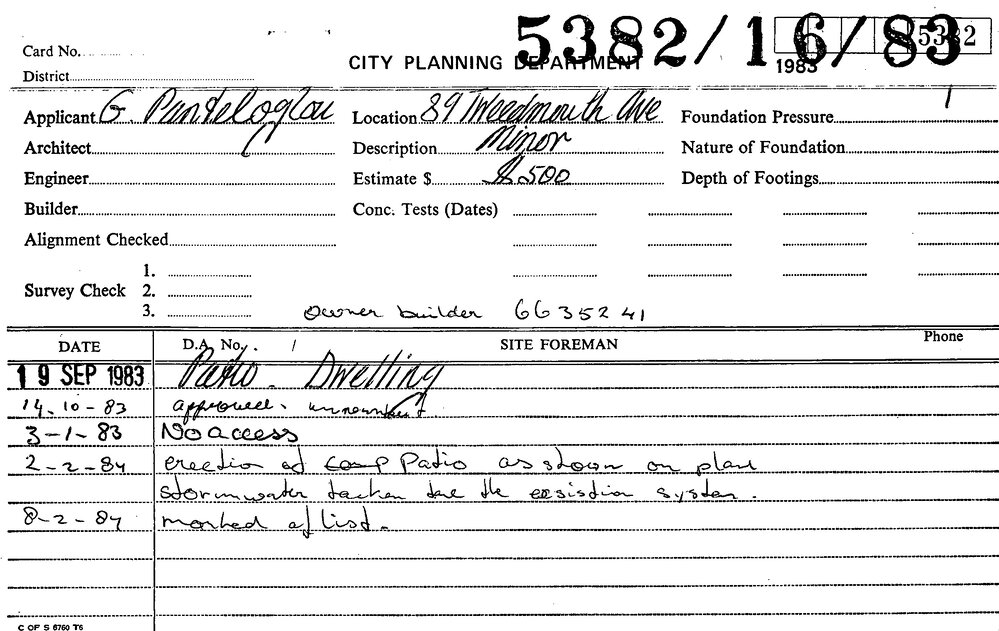 5382/16/83
5382
Card No.
CITY PLANNING DEPARTMENT
1983
District
Applicant G. Panteloglou Location 89 Tweedmouth Ave Foundation Pressure
Architect Description Minor Nature of Foundation
Engineer Estimate $ $500 Depth of Footings
Builder Conc. Tests (Dates)
Alignment Checked
1.
Survey Check 2.
3. owner builder 6635241
DATE D.A. No. SITE FOREMAN Phone
19 SEP 1983 Patio. Dwelling
14.10-83 approved.
3-1-83 No access
2-2-84 erection of comp Patio as shown on plan
stormwater the system.
8-2-84 marked of list.
C OF S 6760 T6